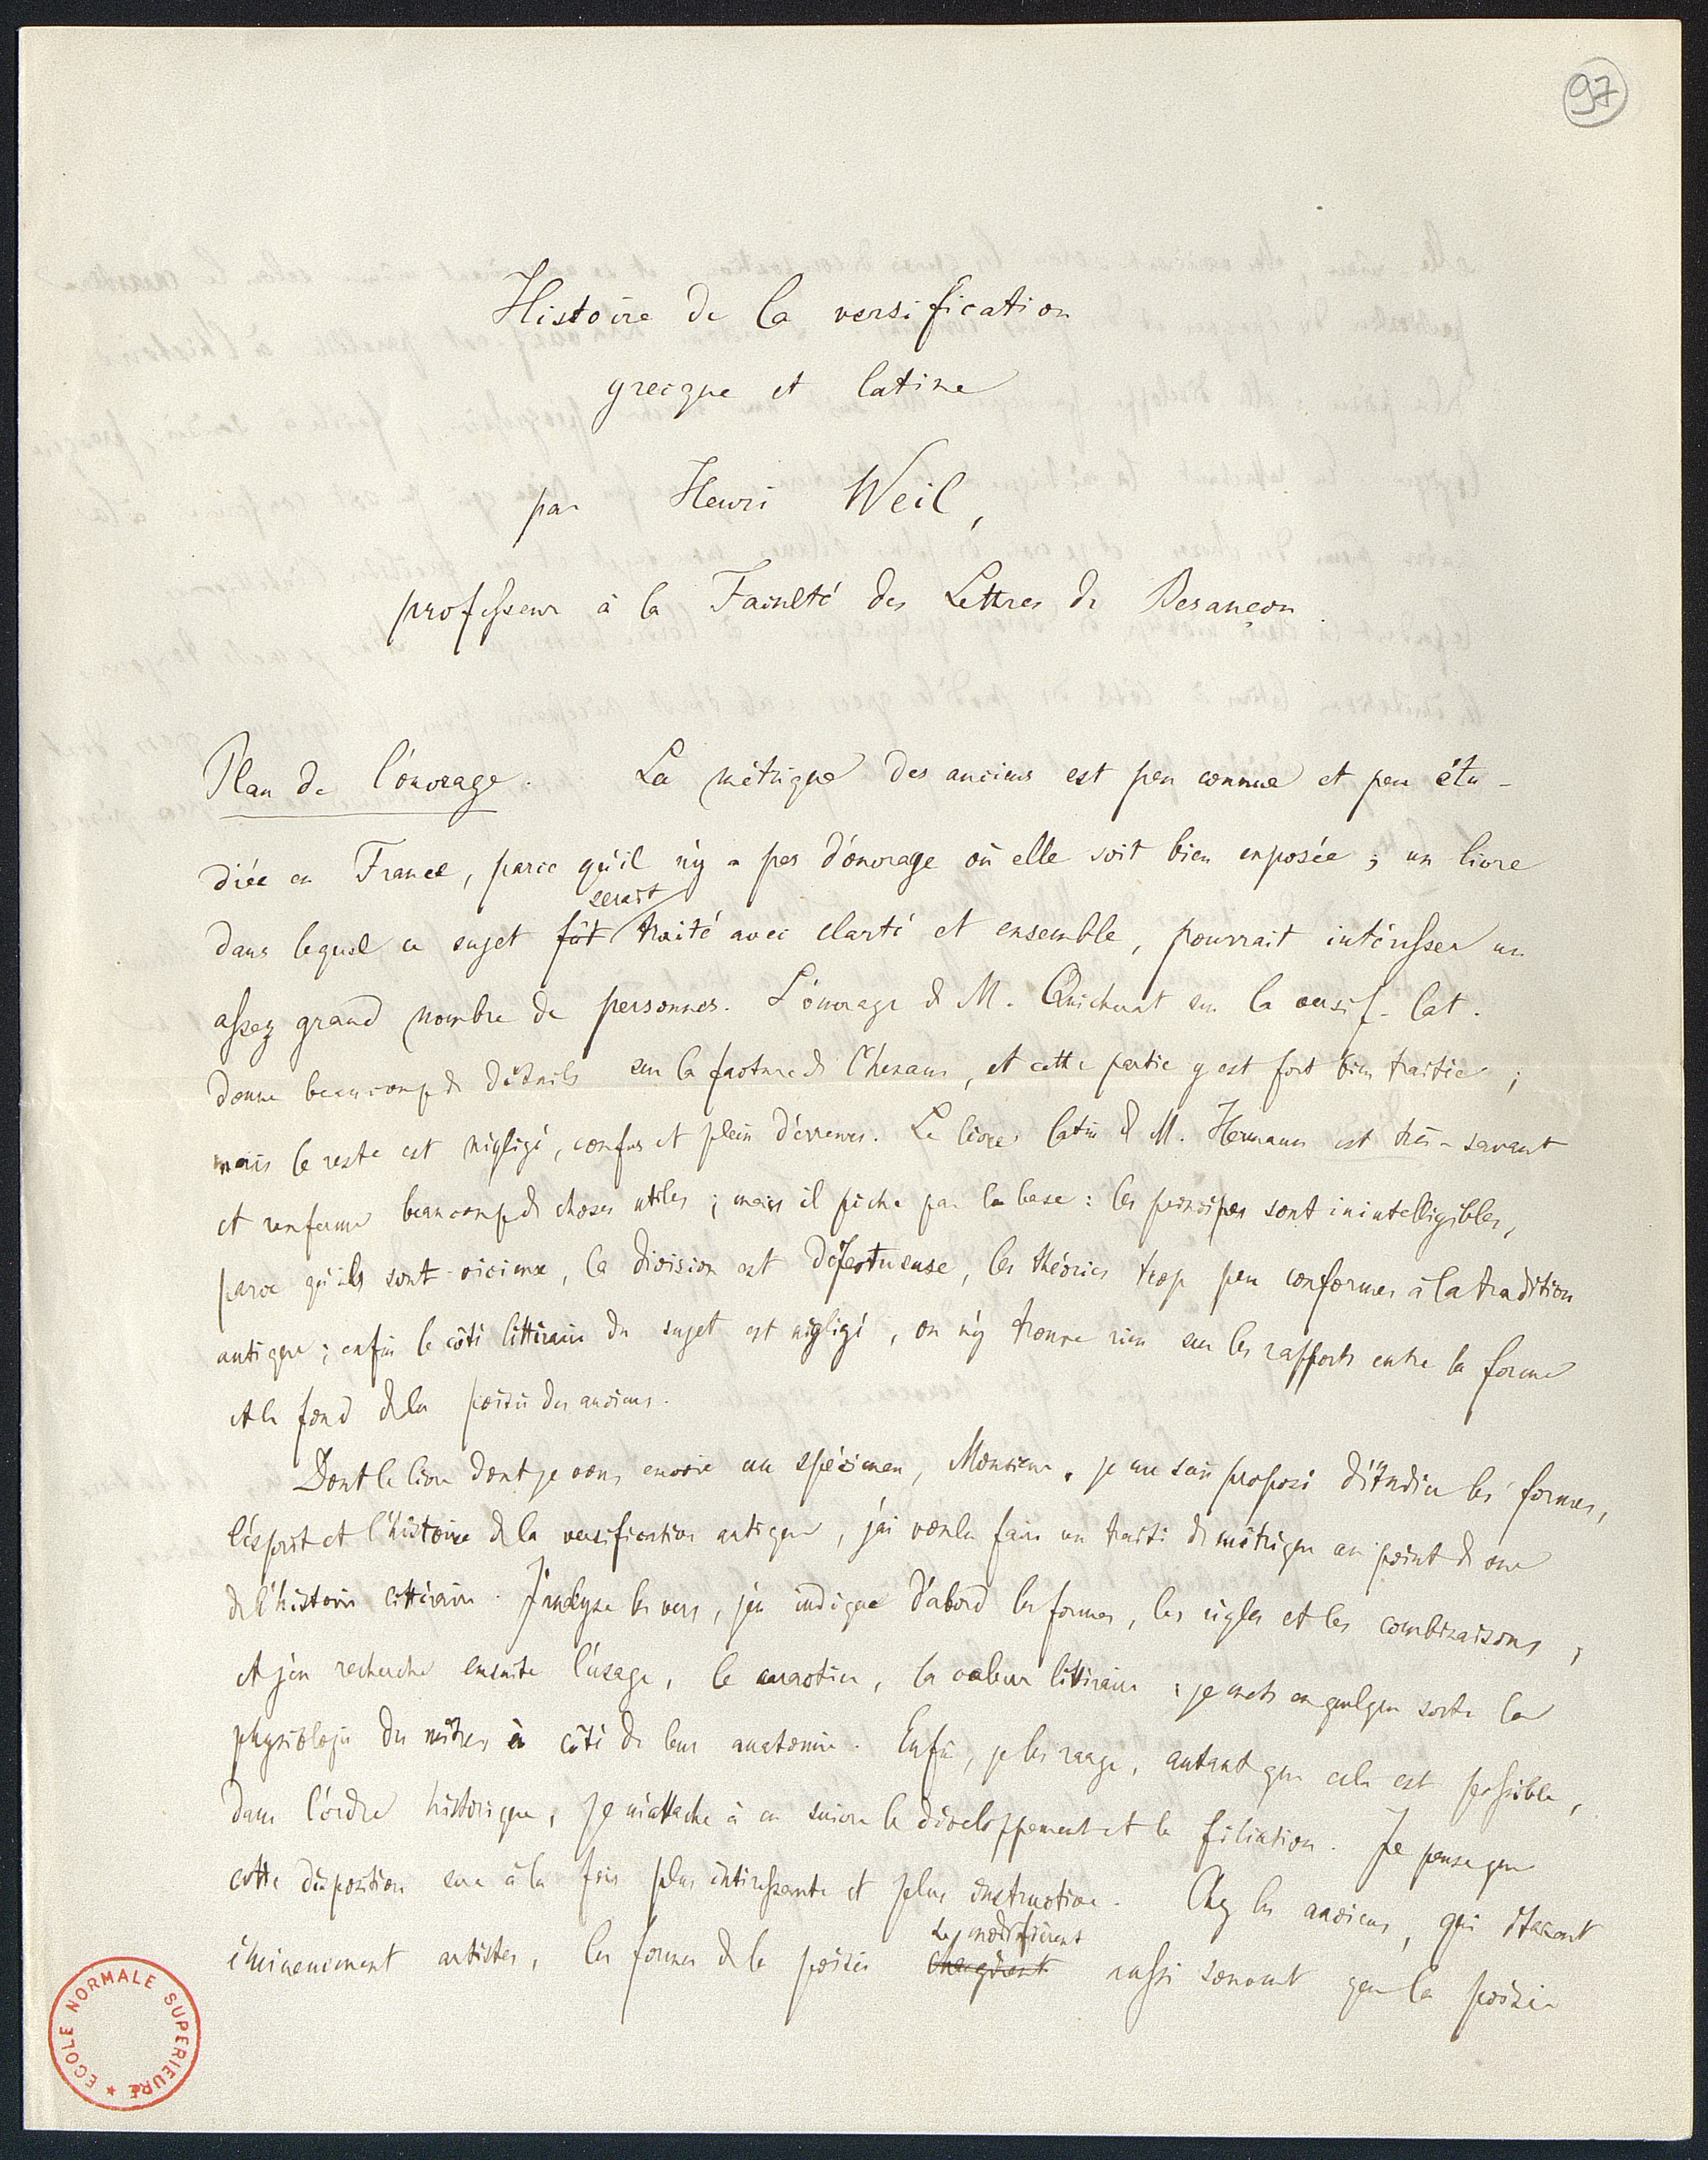 97
Histoire de la versification
grecque et latine
par Henri Weil,
professeur à la Faculté des Lettres de Besançon.
Plan de l'ouvrage. La métrique des anciens est peu connue et peu étu-
diée en France, parce qu'il n'y a pas d'ouvrage où elle soit bien exposée ; un livre
serait
dans lequel ce sujet fût traité avec clarté et ensemble, pourrait intéresser un
assez grand nombre de personnes. L'ouvrage de M. Quicherat sur la versif. lat.
donne beaucoup de détails sur la facture de l'hexam, et cette partie y est fort bien traitée ;
mais le reste est négligé, confus et plein d'erreurs. Le livre latin de M. Hermann est très-savant
et renferme beaucoup de choses utiles ; mais il pèche par la base : les principes sont inintelligibles,
parce qu'ils sont vicieux, la division est défectueuse, les théories trop peu conformes à la tradition
antique ; enfin le côté littéraire du sujet est négligé, on n'y trouve rien sur les rapports entre la forme
et le fond de la poésie des anciens.
Dont le livre dont je vous envoie un spécimen, Monsieur, je me suis proposé d'étudier les formes,
l'esprit et l'histoire de la versification antique, j'ai voulu faire un traité de métrique au point de vue
de l'histoire littéraire. J'analyse les vers, j'en indique d'abord les formes, les règles et les combinaisons,
et j'en recherche ensuite l'usage, le caractère, la valeur littéraire ; je mets en quelque sorte la
physiologie des mètres à côté de leur anatomie. Enfin, je les range, autant que cela est possible,
dans l'ordre historique, je m'attache à en suivre le développement et la filiation. Je pense que
cette disposition sera à la fois plus intéressante et plus instructive. Chez les anciens, qui étaient
se modifièrent
éminemment artistes, les formes de la poésie changèrent aussi souvent que la poésie
ECOLE NORMALE SUPERIEURE